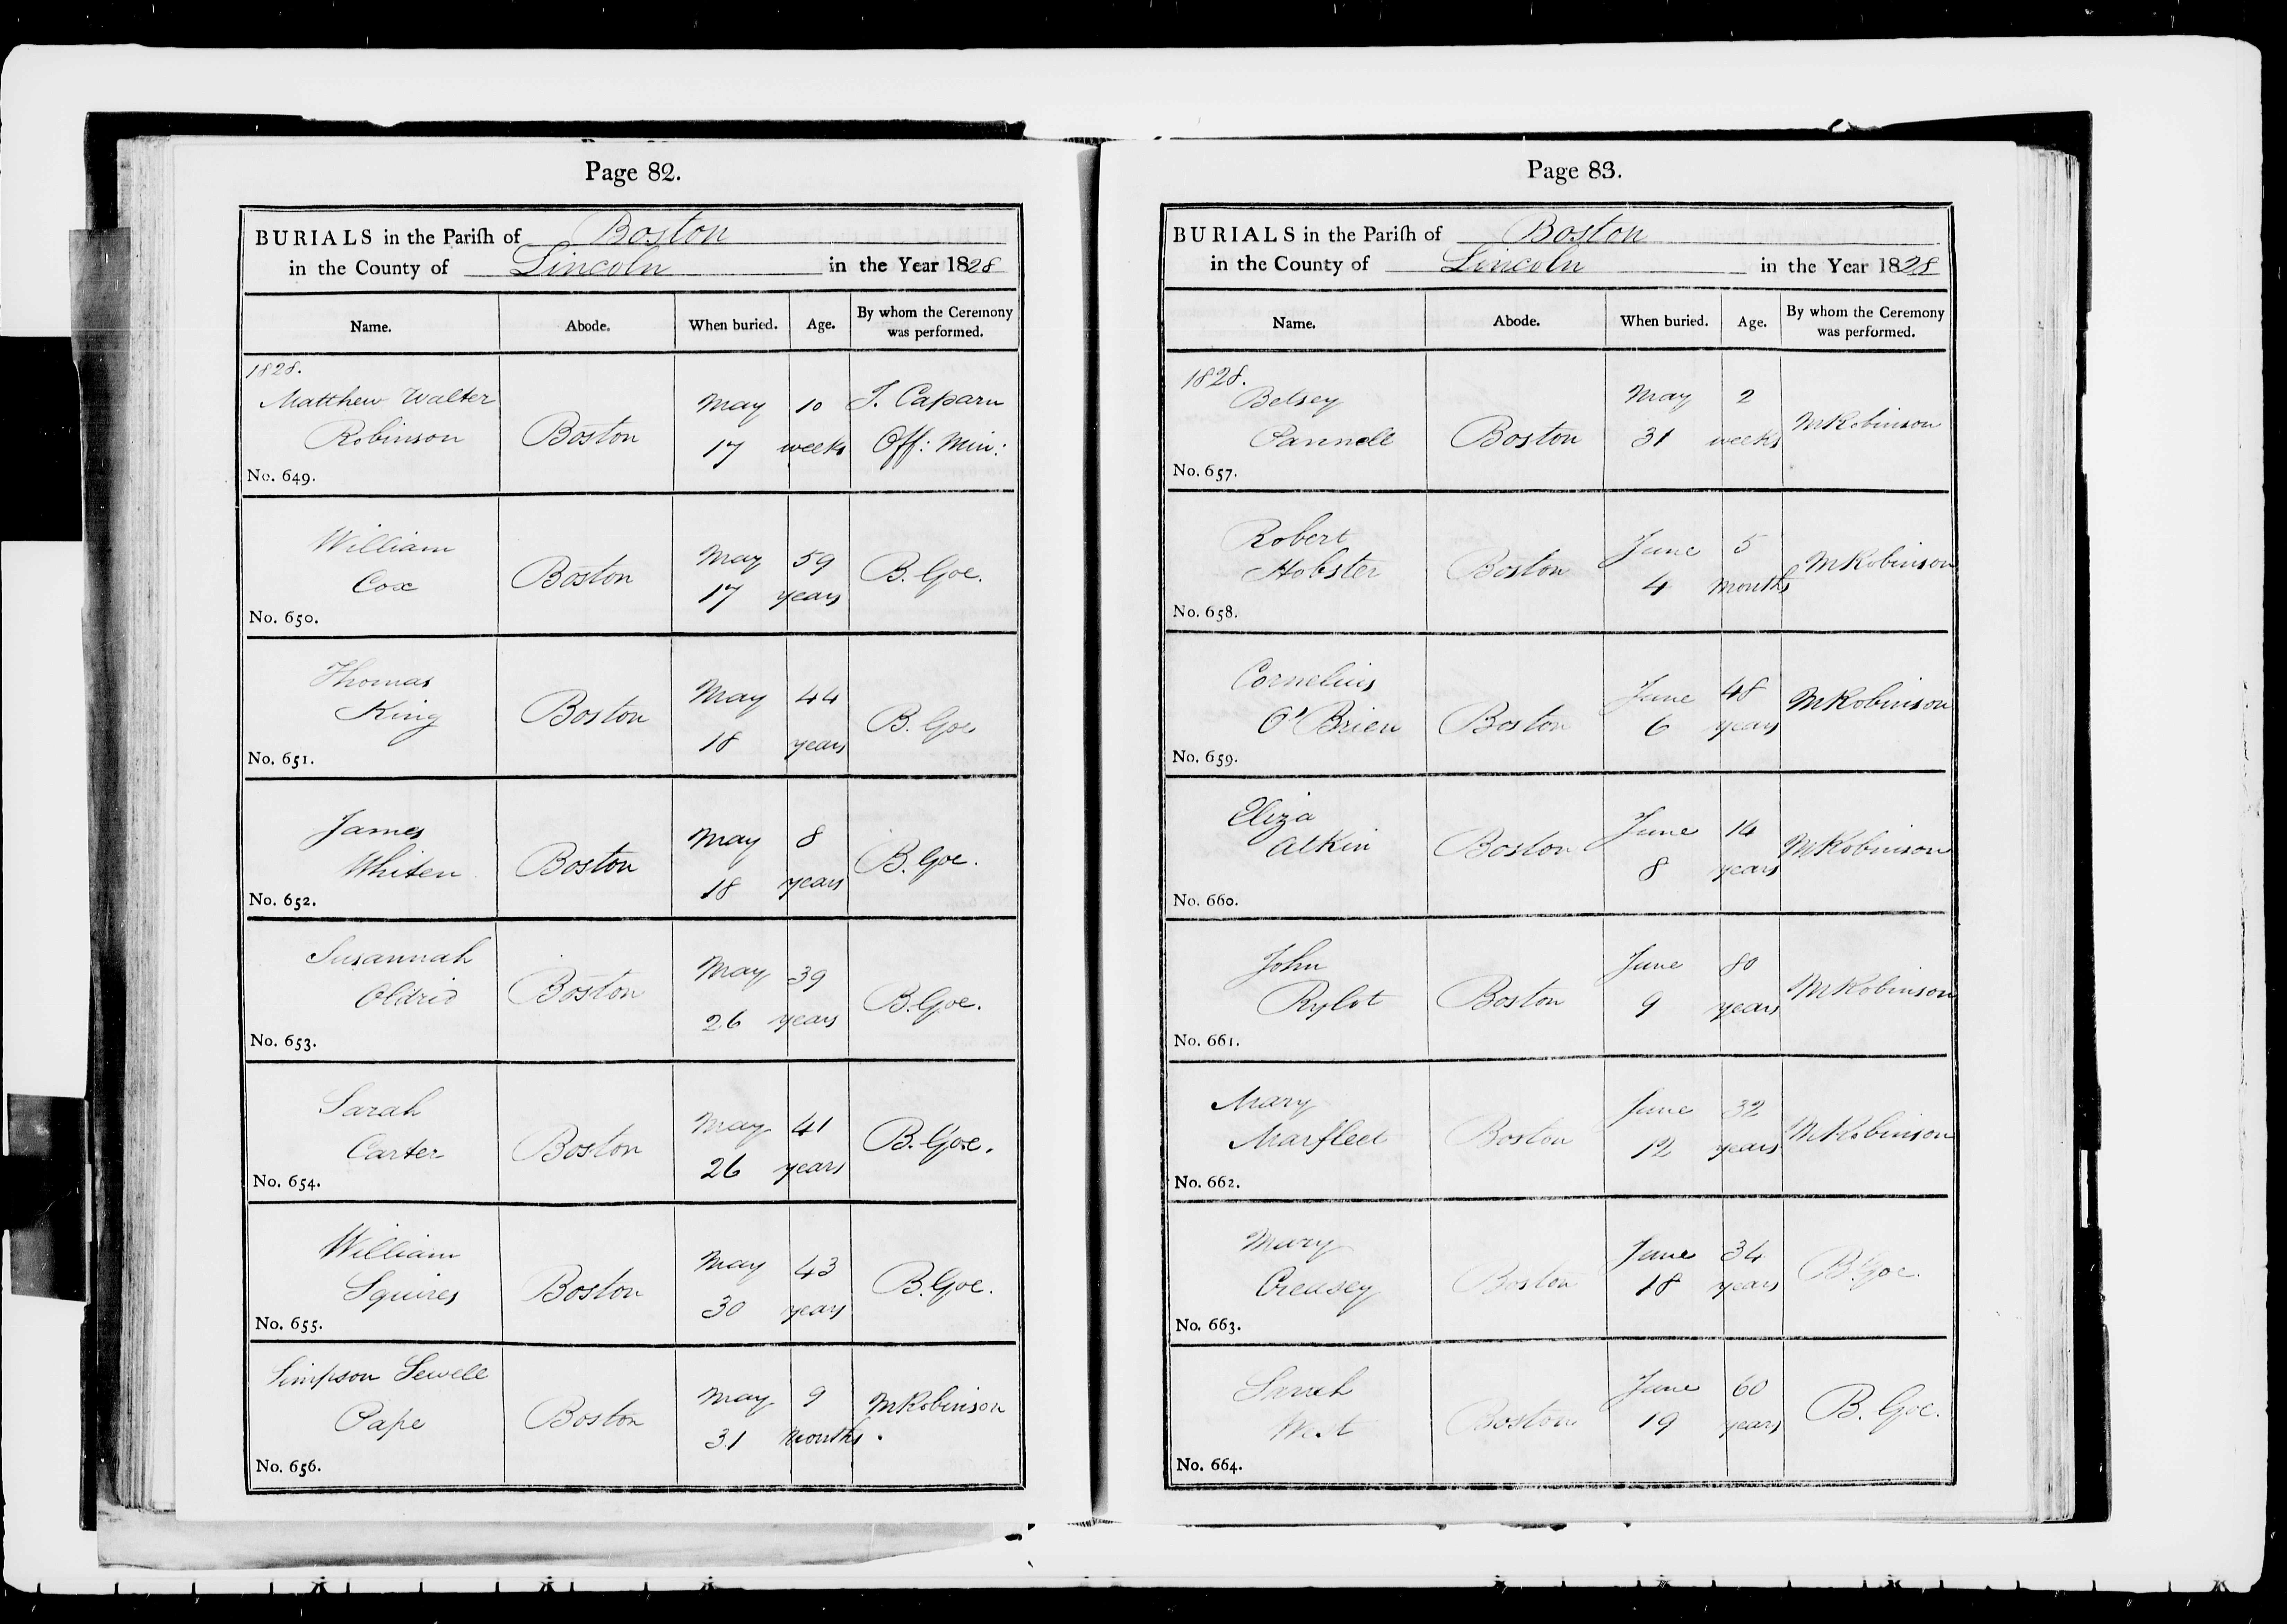 Page 82.
BURIALS in the Pariſh of Boston
in the County of Lincoln in the Year 1828
Name. Abode. When buried. Age. By whom the Ceremony was performed.
1828.
Matthew Walter May 10 J. Caparn
Robinson Boston 17 weeks Off: Min:
No. 649.
William May 59
Cox Boston 17 years B. Goe.
No. 650.
Thomas May 44
King Boston 18 years B. Goe
No. 651.
James May 8
Whiten Boston 18 years B. Goe.
No. 652.
Susannah May 39
Oldrid Boston 26 years B. Goe.
No. 653.
Sarah May 41
Carter Boston 26 years B. Goe.
No. 654.
William May 43
Squires Boston 30 years B. Goe.
No. 655.
Simpson Sewell May 9 MRobinson
Pape Boston 31 Months.
No. 656.
Page 83.
BURIALS in the Pariſh of Boston
in the County of Lincoln in the Year 1828
Name. Abode. When buried. Age. By whom the Ceremony was performed.
1828.
Betsey May 2
Pannell Boston 31 weeks MRobinson
No. 657.
Robert June 5
Hobster Boston 4 Months MRobinson
No. 658.
Cornelius June 48
O'Brien Boston 6 years MRobinson
No. 659.
Eliza June 14
Atkin Boston 8 years MRobinson
No. 660.
John June 80
Rylot Boston 9 years MRobinson
No. 661.
Mary June 32
Marfleet Boston 12 years MRobinson
No. 662.
Mary June 34
Creasey Boston 18 years B. Goe.
No. 663.
Sarah June 60
West Boston 19 years B. Goe.
No. 664.